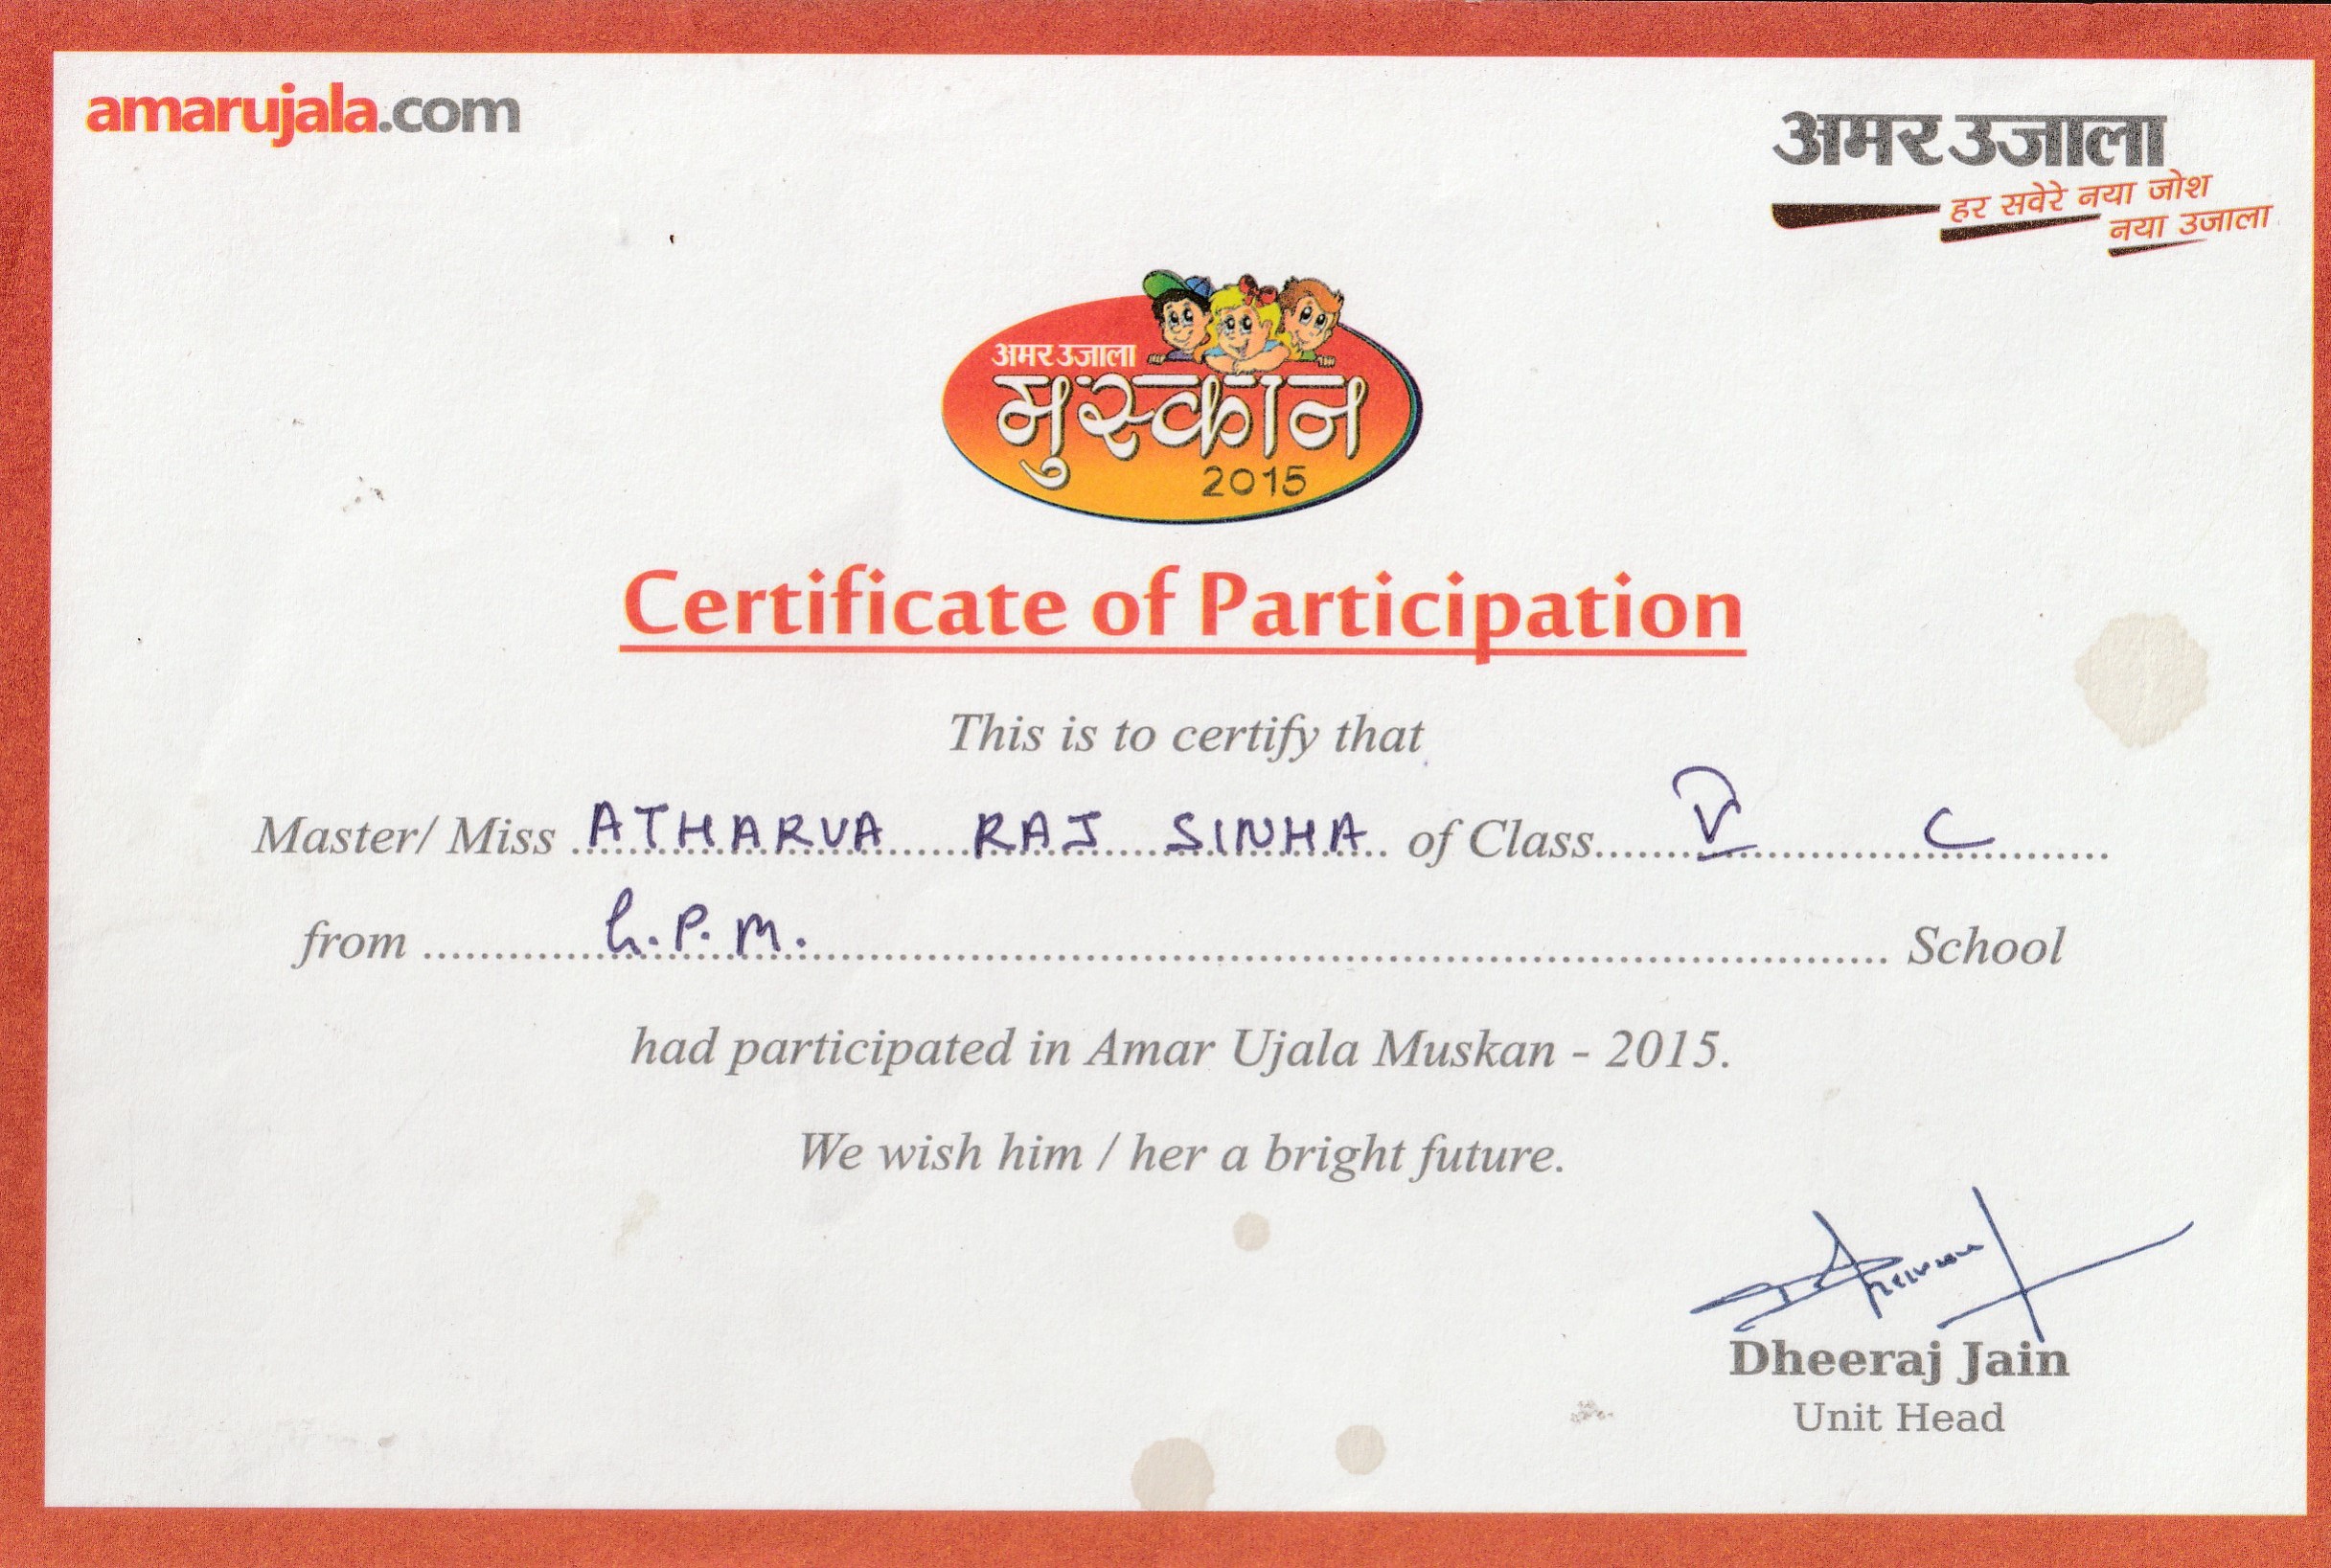 amarujala.com
अमर उजाला
हर सवेरे नया जोश
नया उजाला
अमर उजाला
मुस्कान
2015
Certificate of Participation
This is to certify that
Master/ Miss ATHARVA RAJ SINHA of Class V C
from L.P.M. School
had participated in Amar Ujala Muskan - 2015.
We wish him / her a bright future.
Dheeraj Jain
Unit Head